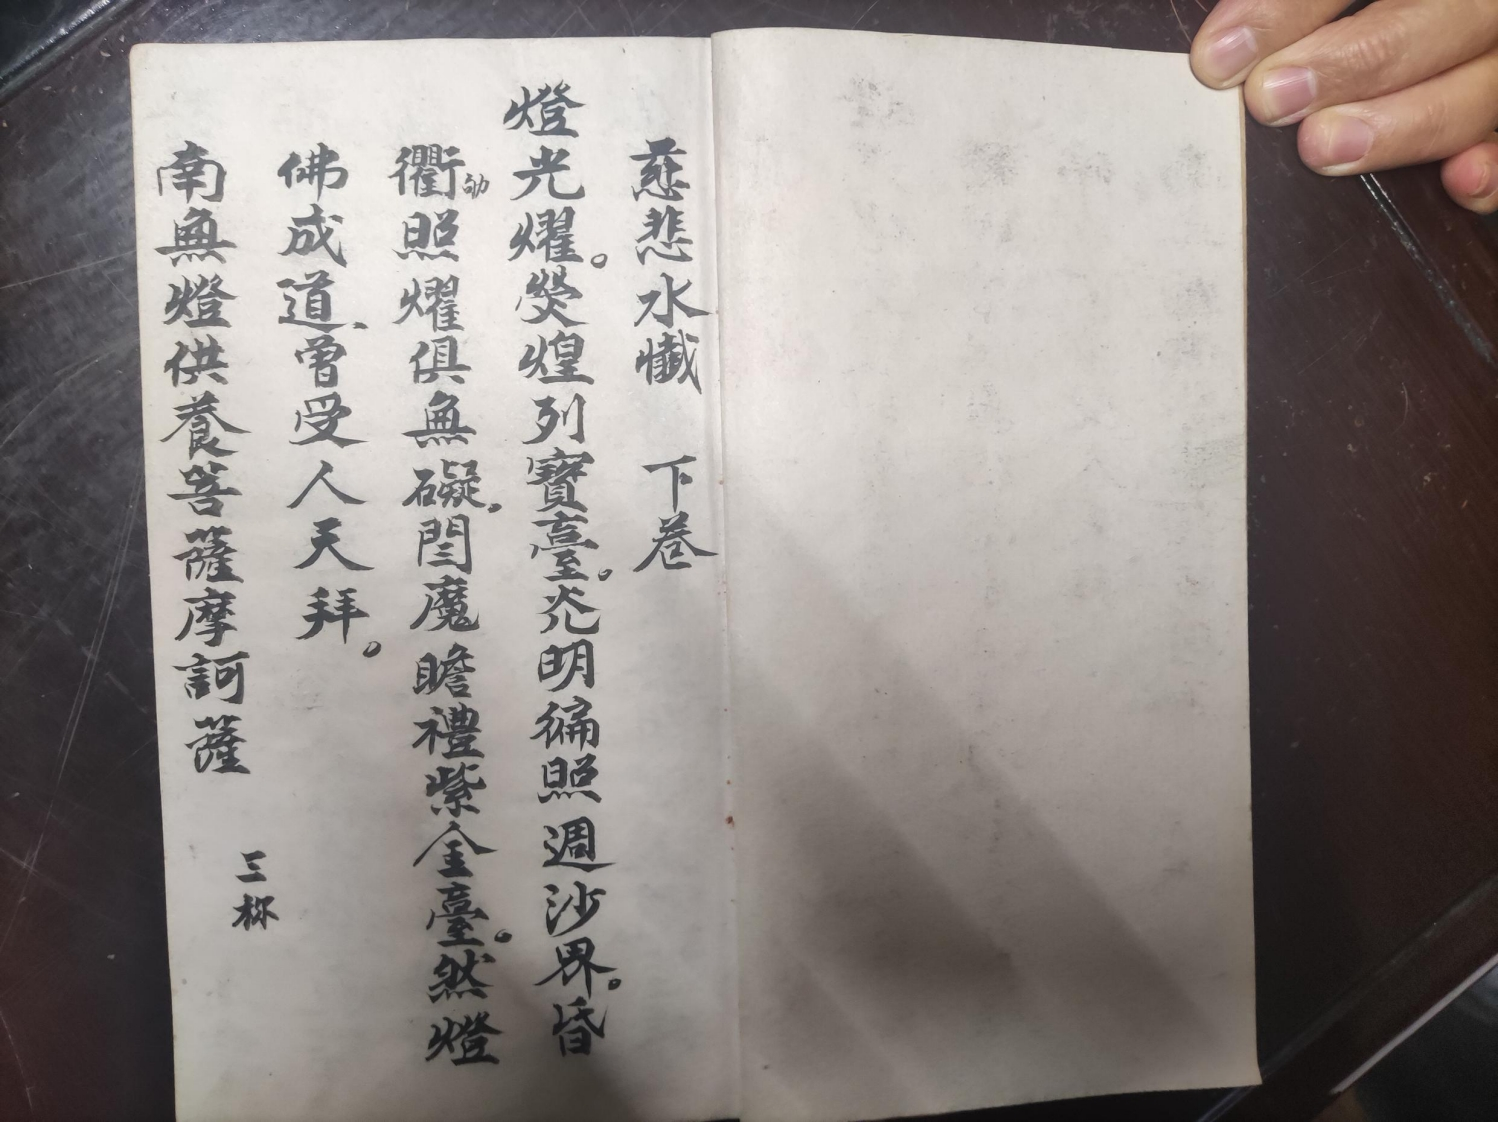 慈悲水懺　下卷
燈光耀。熒煌列寶臺。光明徧照週沙界。昏
衢照耀俱無礙。閆魔瞻禮紫金臺。然燈
佛成道、曾受人天拜。
南無燈供養菩薩摩訶薩
三称